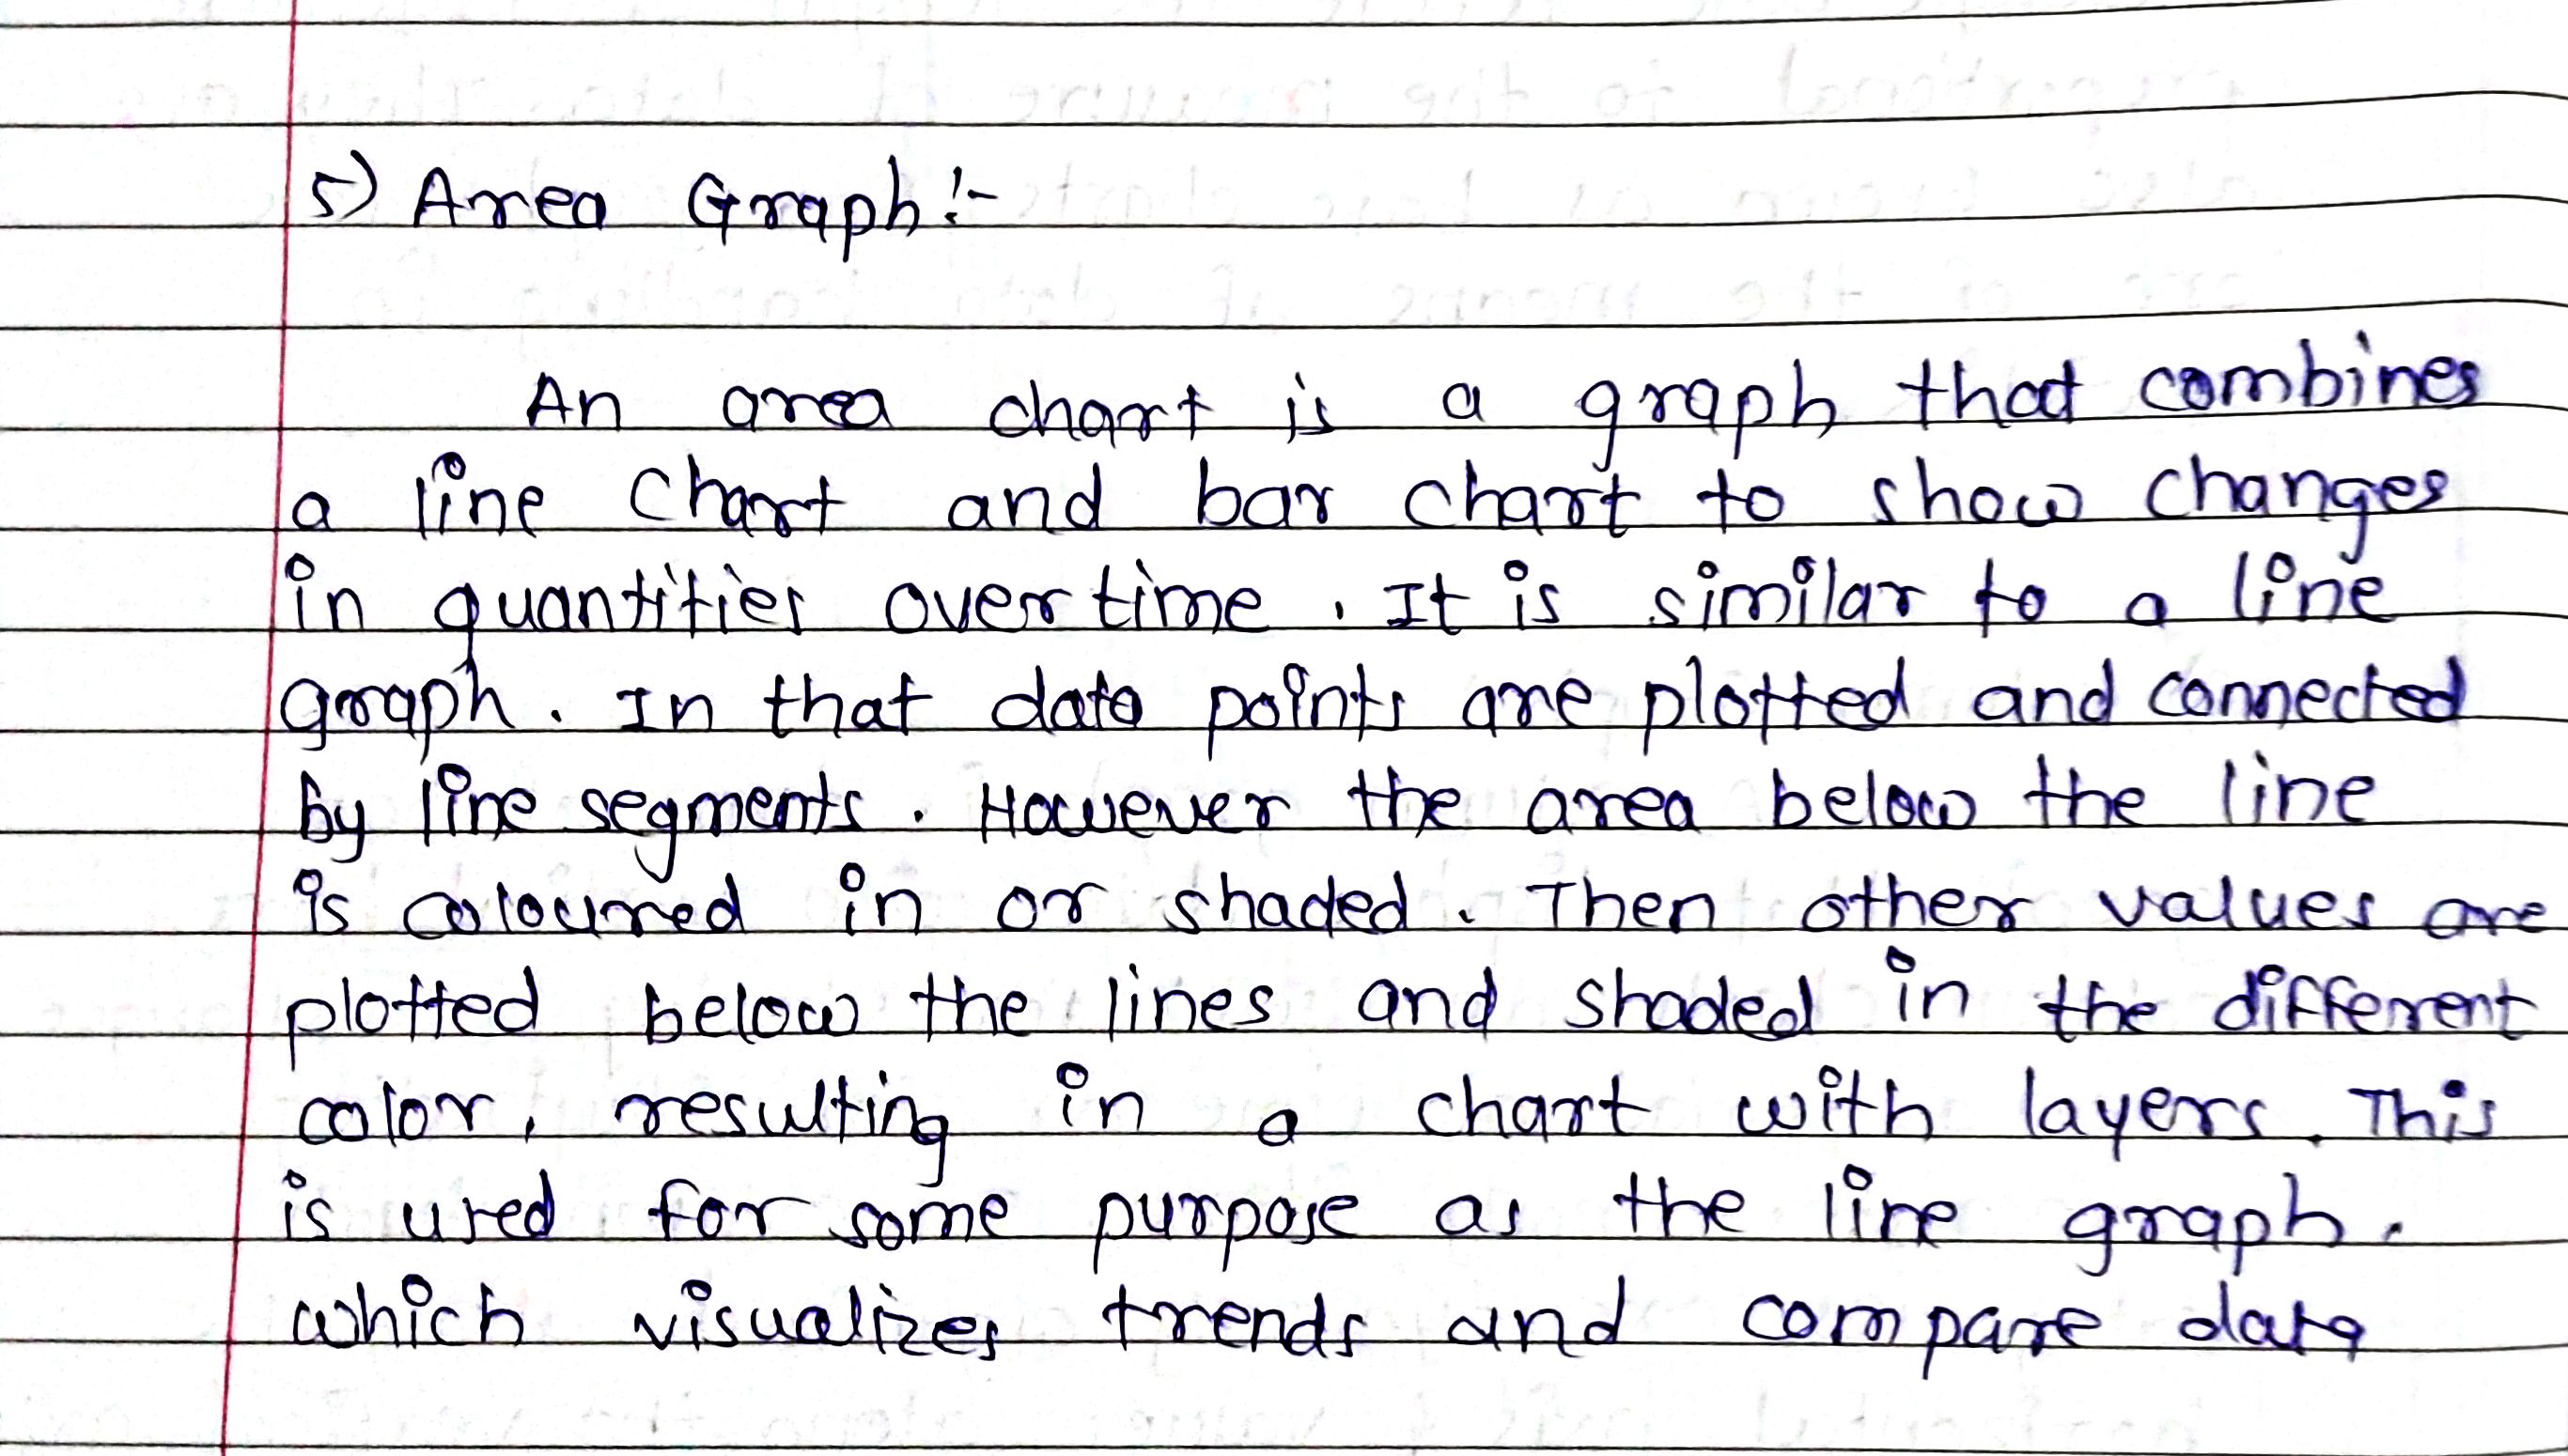 5) Area Graph:-
An area chart is a graph that combines
a line chart and bar chart to show changes
in quantities over time. It is similar to a line
graph. In that data points are plotted and connected
by line segments. However the area below the line
is coloured in or shaded. Then other values are
plotted below the lines and shaded in the different
color, resulting in a chart with layers. This
is used for same purpose as the line graph.
which visualizes trends and compare data